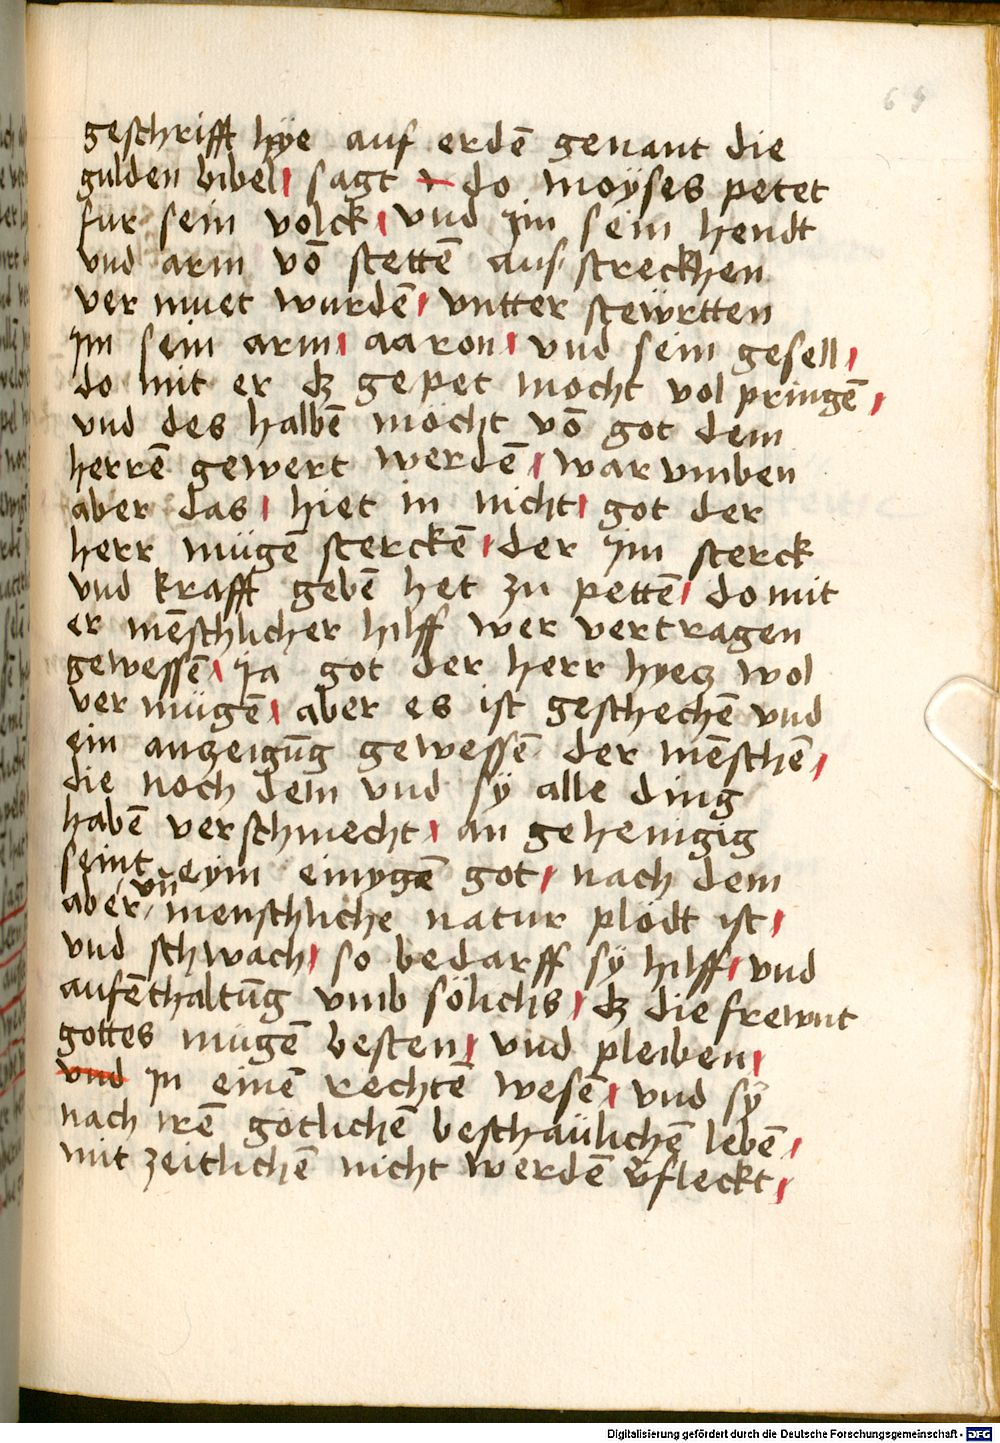 geschrifft hÿe auf erdē genant die
gulden bibel / sagt do moÿses petet
fur sein volck / vnd im sein hendt
vnd arm vō stettē auf streckhen
ver muet wurdē / vntter stewrtten
im sein arm / aaron / vnd sein gesell /
do mit er dz gepet mocht vol pringē /
vnd des halbē möcht vō got dem
herrē gewert werdē / war vmben
aber das / hiet in nicht / got der
herr mügē sterckē / der im sterck
vnd krafft gebē het zu pettē / do mit
er mēschlicher hilff wer vertragen
gewessē / ja got der herr hyetz wol
ver mügē / aber es ist geschechē vnd
ein anzeigūg gewessē der mēschē /
die noch dem vnd sÿ alle ding
habē verschmecht / an gehenigig
seint eym einygē got / nach dem
aber / vn̄ menschliche natur plödt ist /
vnd schwach / so bedarff sÿ hilff / vnd
aufēthaltūg vmb sölichs / dz die frewnt
gottes mügē besten / vnd pleiben /
vnd in einē rechtē wesē / vnd sÿ
nach irē gotlichē beschaülichē lebē /
mit zeitlichē nicht werdē v̄fleckt /
69
Digitalisierung gefördert durch die Deutsche Forschungsgemeinschaft - DFG